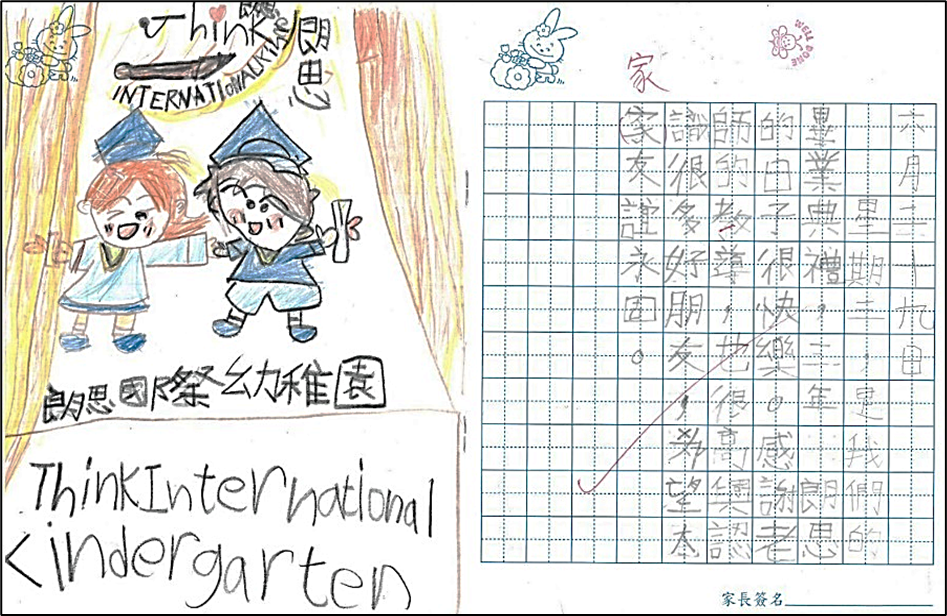 Think
朗思
INTERNATIONAL
朗思國際幼稚園
Think International
Kindergarten
家
WELL DONE
六月二十九日
星期三,是我們的
畢業典禮,三年朗思
的日子很快樂。感謝老
師的教導,也很高興認
識很多好朋友,希望大
家友誼永固。
家長簽名